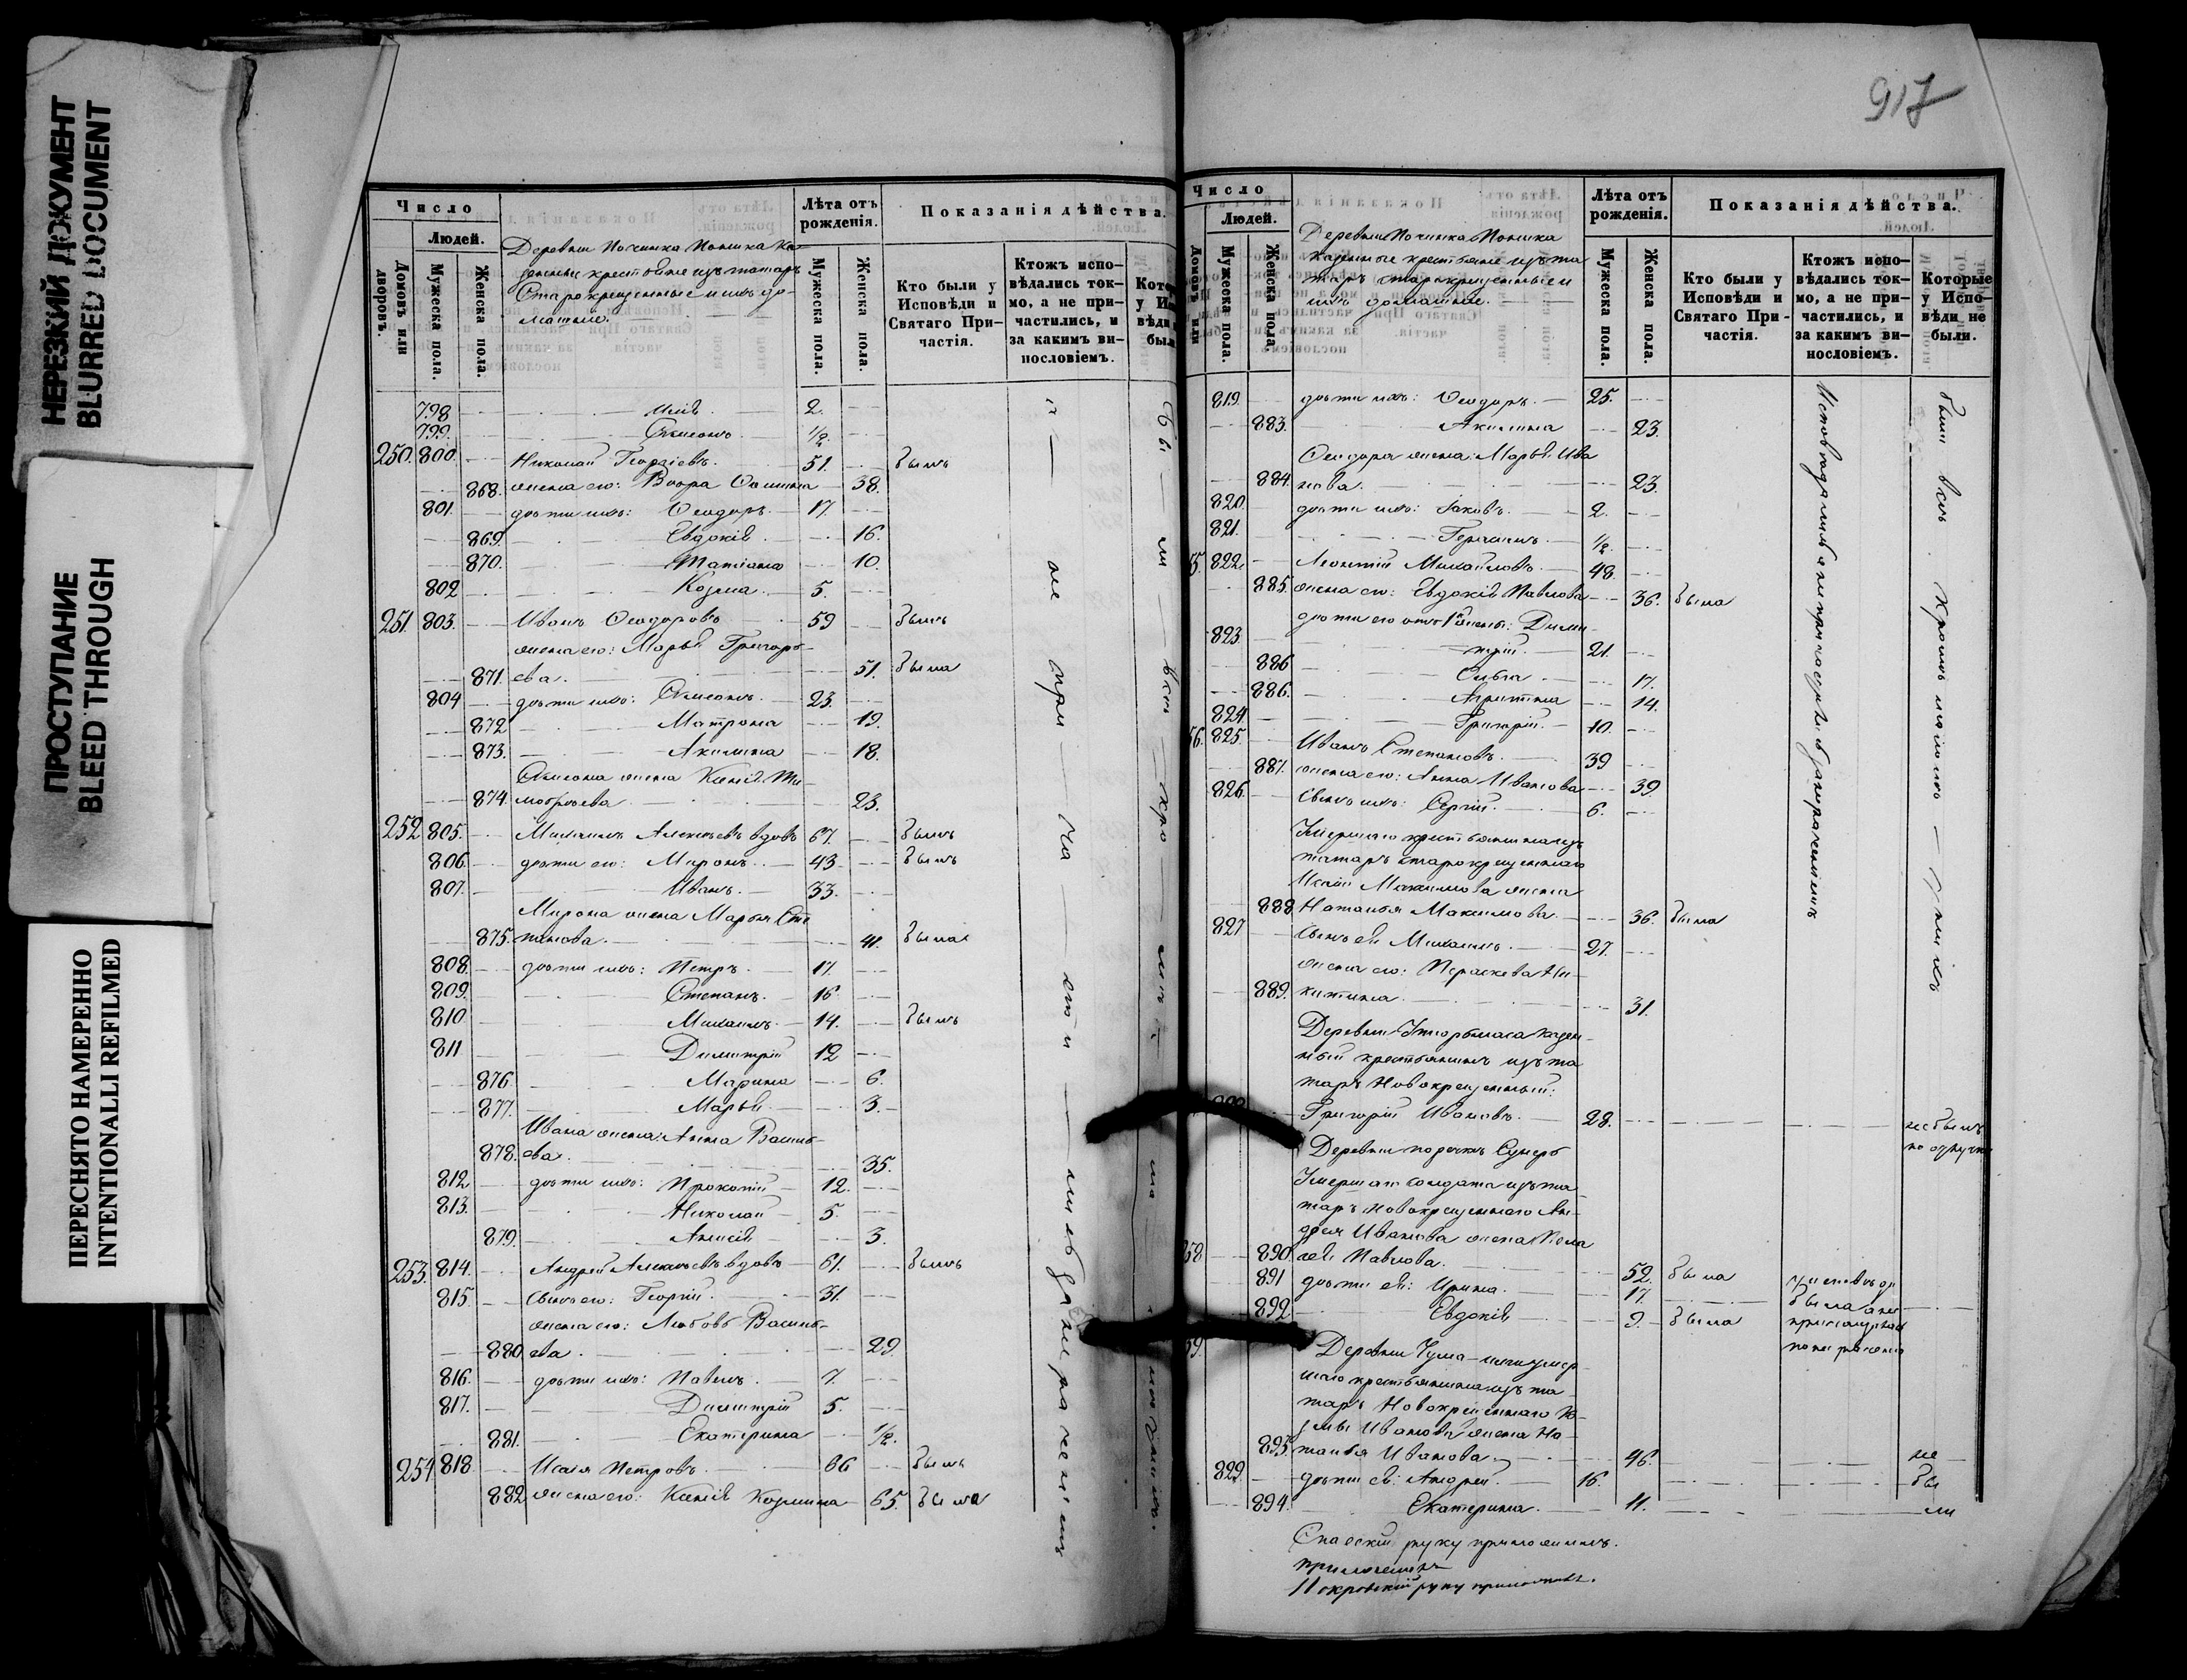 НЕРЕЗКИЙ ДОКУМЕНТ
BLURRED DOCUMENT
ПРОСТУПАНИЕ
BLEED THROUGH
ПЕРЕСНЯТО НАМЕРЕННО
INTENTIONALLI REFILMED
Число
Людей.
Домовъ или дворовъ.
Мужеска пола.
Женска пола.
Деревни Починка Поника Ка-
зенные крестьяне изъ татаръ
Старокрещенные и ихъ до-
машніе.
Лѣта отъ рожденія.
Мужеска пола.
Женска пола.
Показанія дѣйства.
Кто были у Исповѣди и Святаго При-частія.
Ктожъ испо-вѣдались ток-мо, а не при-частились, и за какимъ ви-нословіемъ.
798 Илія 2.
799. Симеонъ 1/2.
250. 800. Николай Георгіевъ 51. былъ
868. жена его: Вѣра Осипова 38.
801. дѣти ихъ: Ѳеодоръ 17.
869. Евдокія 16.
870. Татіана 10.
802 Козма 5.
251. 803. Иванъ Ѳеодоровъ 59 былъ
жена его: Марья Григорь-
871. ева. 51. была
804 дѣти ихъ: Симеонъ 23.
872 Матрона 19.
873. Акилина 18.
Симеона жена Ксенія Ти-
874. моѳеева 23.
252 805. Михаилъ Алексѣевъ вдовъ 67. былъ
806. дѣти его: Миронъ 43 былъ
807. Иванъ 33.
Мирона жена Марья Сте-
875. панова 41. была
808. дѣти ихъ: Петръ 17.
809. Степанъ 16
810. Михаилъ 14. былъ
811 Димитрій 12
876 Марина 6.
877. Марья 3.
Ивана жена: Анна Василь-
878. ева 35.
812 дѣти ихъ: Прокопій 12.
813. Николай 5.
879. Анисія 3.
253. 814. Андрей Алексѣевъ вдовъ 61. былъ
815. сынъ его: Георгій 31.
жена его: Любовь Василь-
880. ева 29.
816. дѣти ихъ: Павелъ 7.
817. Димитрій 5.
881. Екатерина 1/2.
254 818 Исаія Петровъ 66 былъ
882 жена его: Ксенія Козмина 65. была
917
Число
Людей.
Домовъ или
Мужеска пола.
Женска пола.
Деревни Починка Поника
Казенные крестьяне изъ та
таръ старокрещенные и
ихъ домашніе.
Лѣта отъ рожденія.
Мужеска пола.
Женска пола.
Показанія дѣйства.
Кто были у Исповѣди и Святаго При-частія.
Ктожъ испо-вѣдались ток-мо, а не при-частились, и за какимъ ви-нословіемъ.
Которые у Испо-вѣди не были.
819. дѣти ихъ: Ѳеодоръ 25.
883. Акилина 23.
Ѳеодора жена: Марья Ива
884. нова 23.
820. дѣти ихъ: Іаковъ 2.
821. Германъ 1/2.
55. 822. Леонтій Михайловъ 48.
885. жена его: Евдокія Павлова 36. была
дѣти его отъ 1й жены: Дими-
823. трій 21.
886 17.
886. 14.
824. Григорій 10.
56. 825. Иванъ Степановъ 39
887. жена его: Анна Иванова 39.
826. сынъ ихъ: Сергій 6.
Умершаго крестьянина изъ
татаръ старокрещеннаго
Исаіи Максимова жена
888. Наталья Максимова 36. была
827 сынъ ея Михаилъ 27.
жена его: Параскева Ни-
889. китина 31.
казен-
ный крестьянинъ изъ та
таръ Новокрещенный:
Григорій Ивановъ 28. не былъ
Деревни
Умершаго солдата изъ та
таръ новокрещеннаго Ан-
дрея Ивановa жена Пела
58 890. гея Павлова 52. была
891 дѣти ея: Ирина 17.
892 Евдокія 9. была
59. Деревни умер-
шаго крестьянина изъ та
таръ Новокрещеннаго Ко-
змы Иванова жена На-
893. талья Иванова 46. не
829. дѣти ея: Андрей 16. бы
894. Екатерина 11. ли
Спасскій руку приложилъ.
Покровскій руку приложилъ.